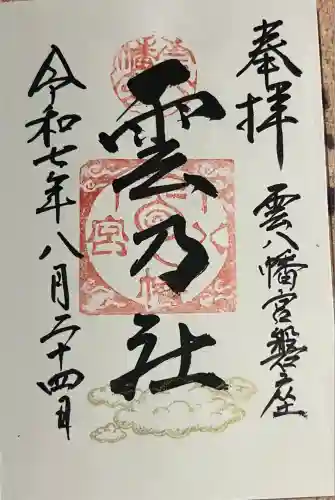 奉拝
雲八幡宮磐座
雲乃社
令和七年八月二十四日